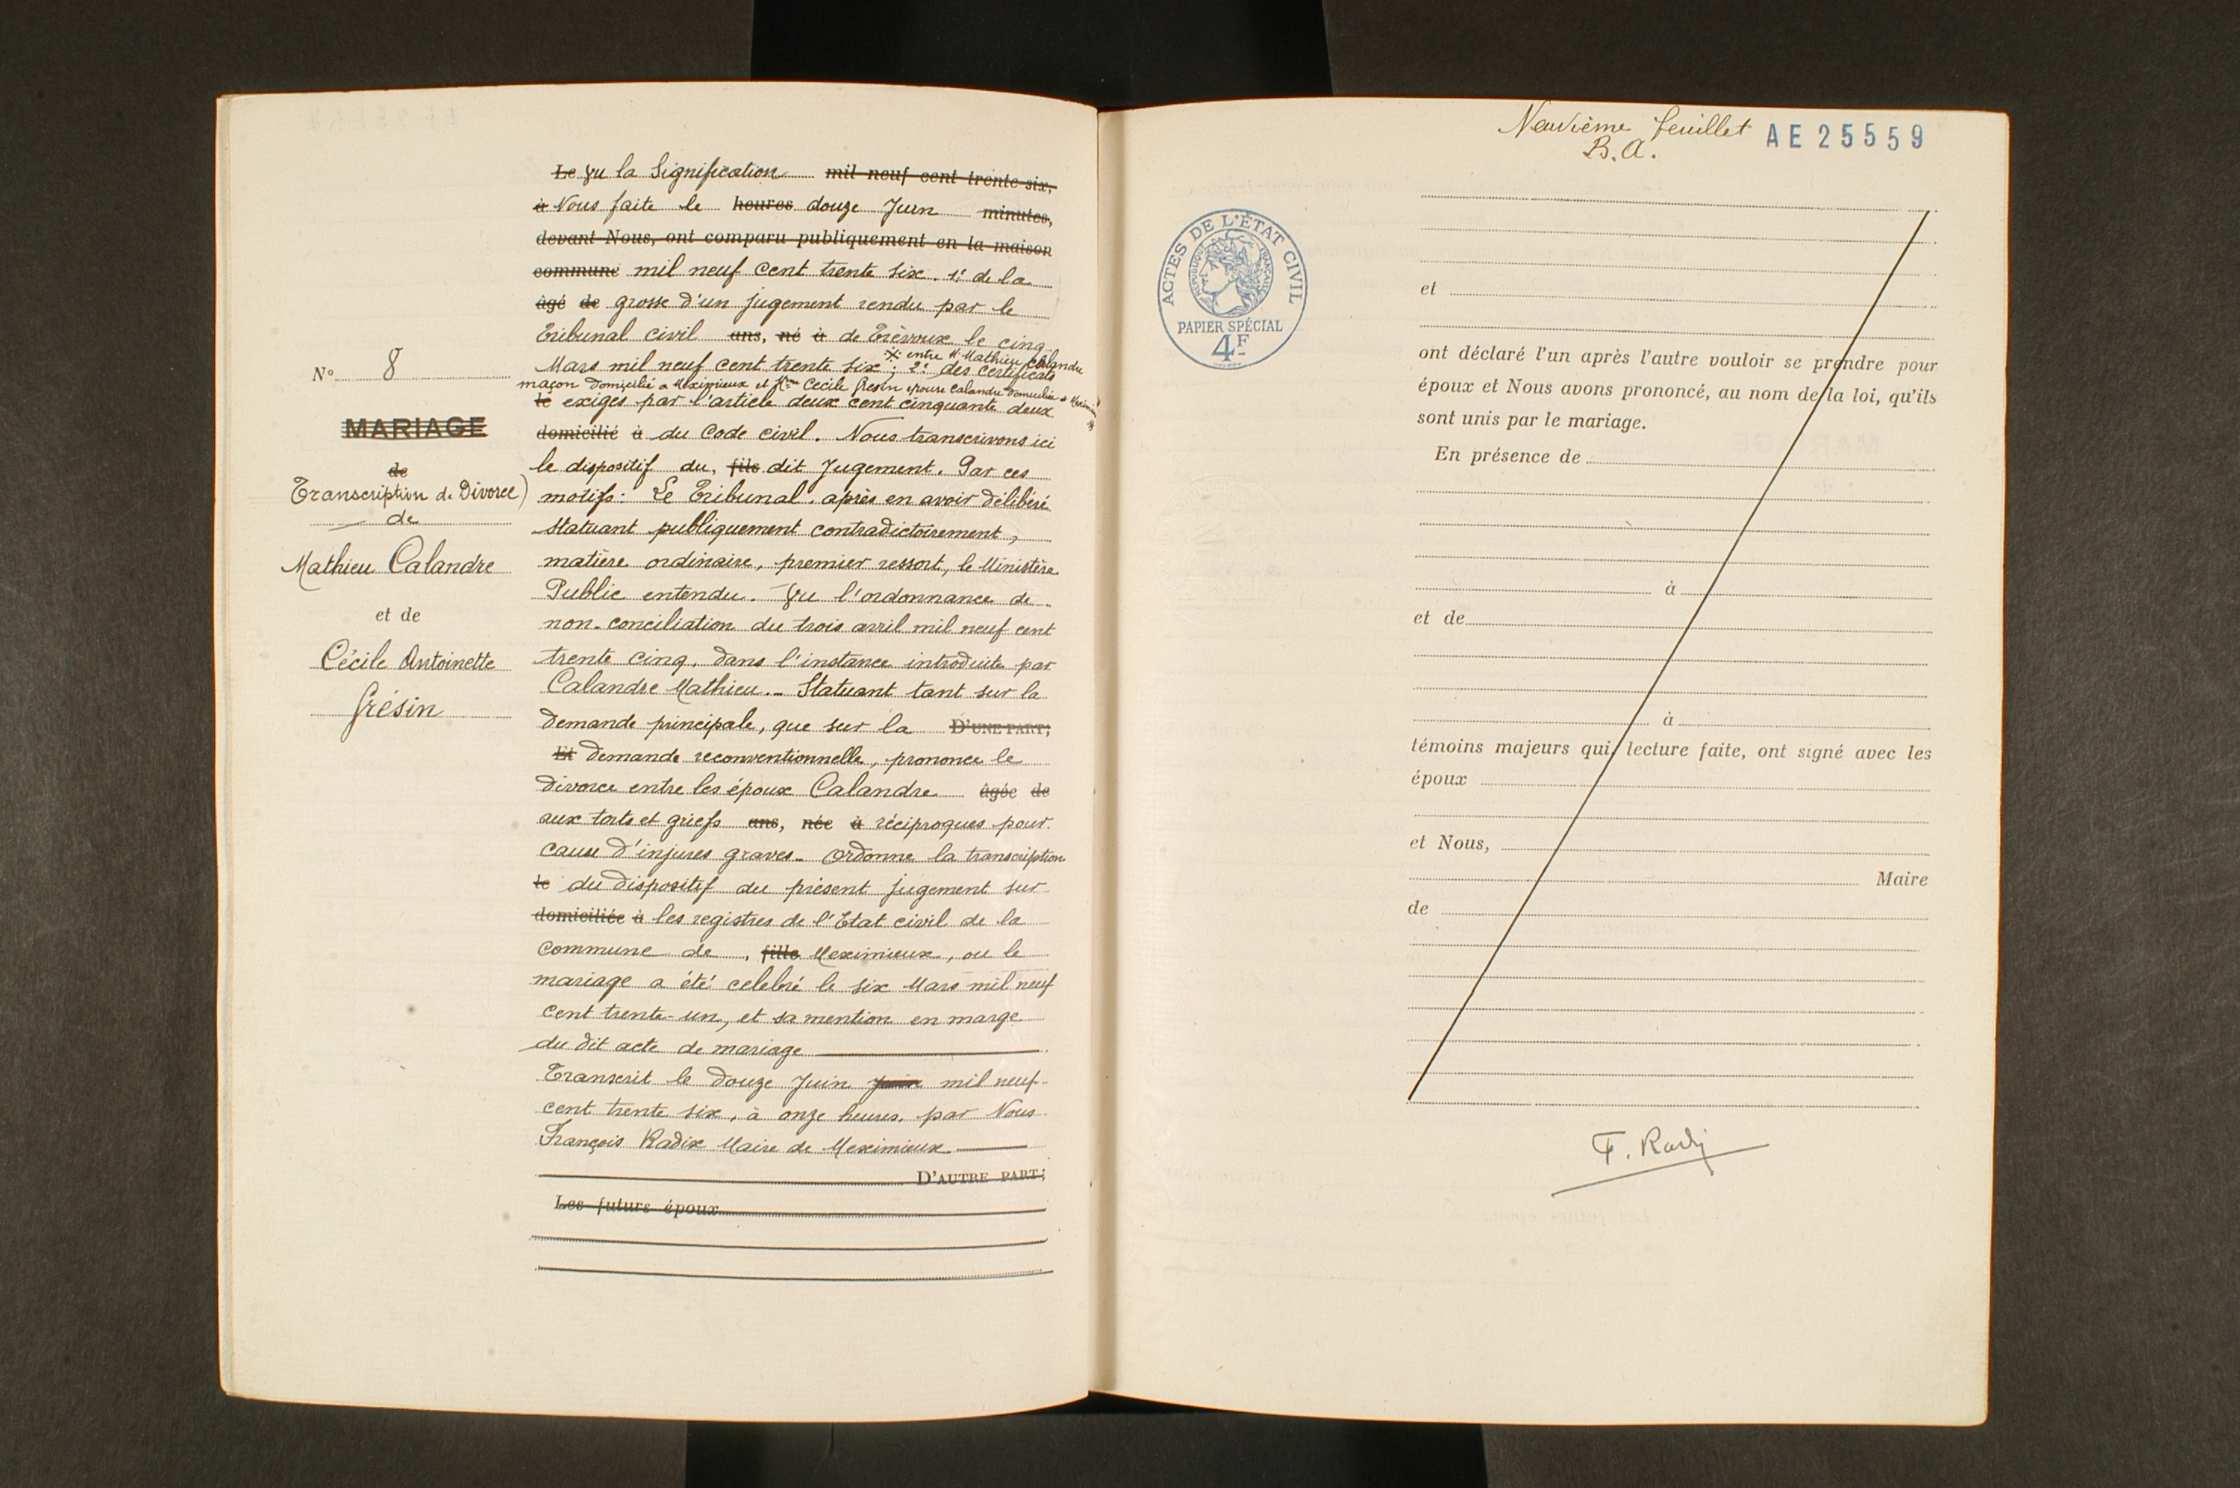 N° 8
MARIAGE
de
Transcription de Divorce)
de
Mathieu Calandre
et de
Cécile Antoinette
Grésin
Le Vu la Signification mil neuf cent trente-six,
à Nous faite le heures douze Juin minutes,
devant Nous, ont comparu publiquement en la maison
commune mil neuf cent trente six. 1º de la
âgé de grosse d'un jugement rendu par le
Tribunal civil ans, né à de Trèvoux le cinq
※ entre M Mathieu Calandre
Mars mil neuf cent trente six ; 2º des certificats
maçon domicilié a Meximieux et Mme Cécile Gresin epouse Calandre domiciliée a Meximieux
le exigés par l'article deux cent cinquante deux
domicilié à du Code civil. Nous transcrivons ici
le dispositif du, fils dit Jugement. Par ces
motifs: Le Tribunal après en avoir délibéré
statuant publiquement contradictoirement,
matière ordinaire, premier ressort, le Ministère
Public entendu. Vu l'ordonnance de
non-conciliation du trois avril mil neuf cent
trente cinq, dans l'instance introduite par
Calandre Mathieu. - Statuant tant sur la
demande principale, que sur la D'UNE PART;
Et demande reconventionnelle, prononce le
divorce entre les époux Calandre âgée de
aux torts et griefs ans, née à réciproques pour
cause d'injures graves - Ordonne la transcription
le du dispositif du présent jugement sur
domiciliée à les registres de l'Etat civil de la
commune de , fille Meximieux, ou le
mariage a été celebré le six Mars mil neuf
cent trente-un, et sa mention en marge
du dit acte de mariage
Transcrit le douze Juin Juin mil neuf
cent trente six, à onze heures, par Nous
François Radix Maire de Meximieux
D'AUTRE PART;
Les futurs époux
Neuvième feuillet AE 25559
B.A.
ACTES DE L'ÉTAT CIVIL
RÉPUBLIQUE FRANÇAISE
PAPIER SPÉCIAL
4F
et
ont déclaré l'un après l'autre vouloir se prendre pour
époux et Nous avons prononcé, au nom de la loi, qu'ils
sont unis par le mariage.
En présence de
à
et de
à
témoins majeurs qui, lecture faite, ont signé avec les
époux
et Nous,
Maire
de
F. Radix